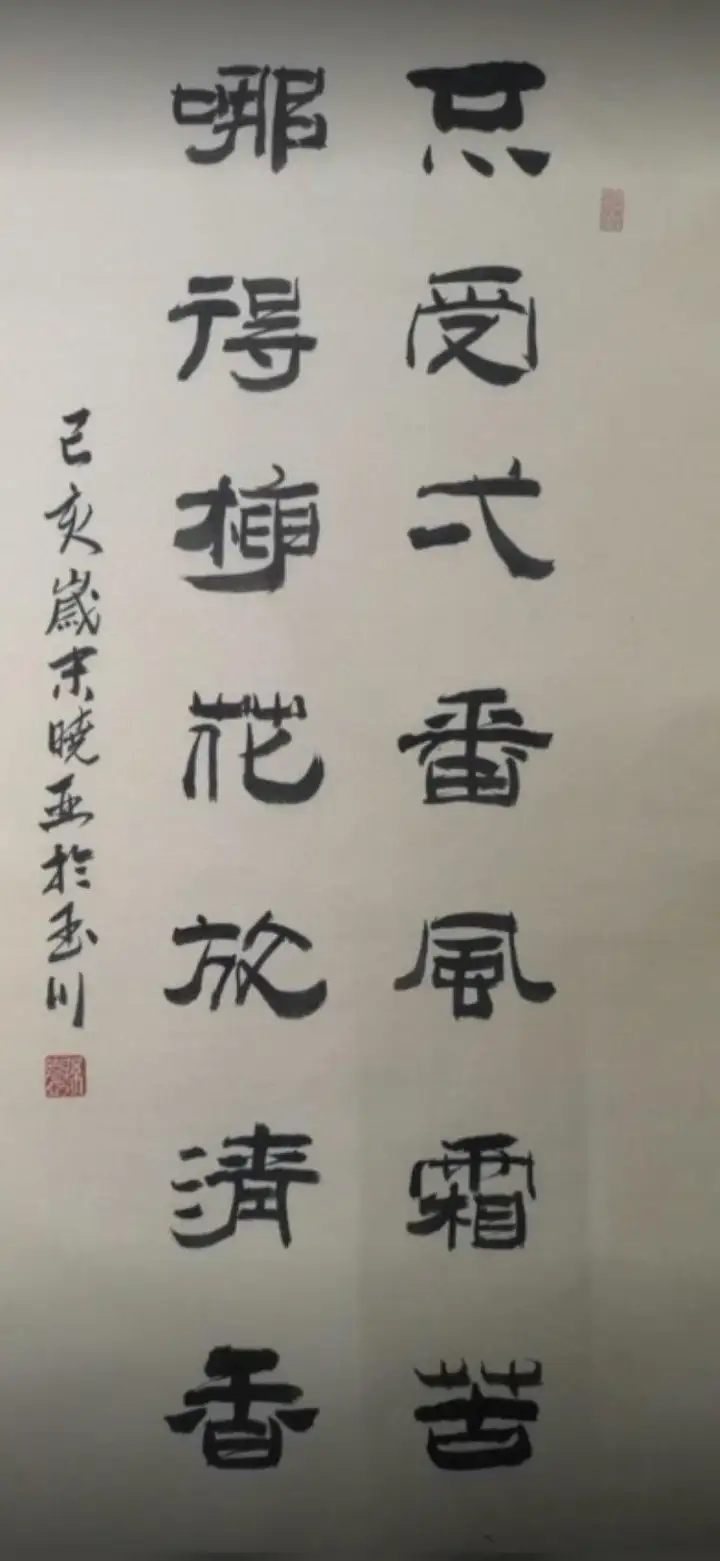 只受弌番風霜苦
哪得梅花放清香
己亥歲末曉亚於玉川